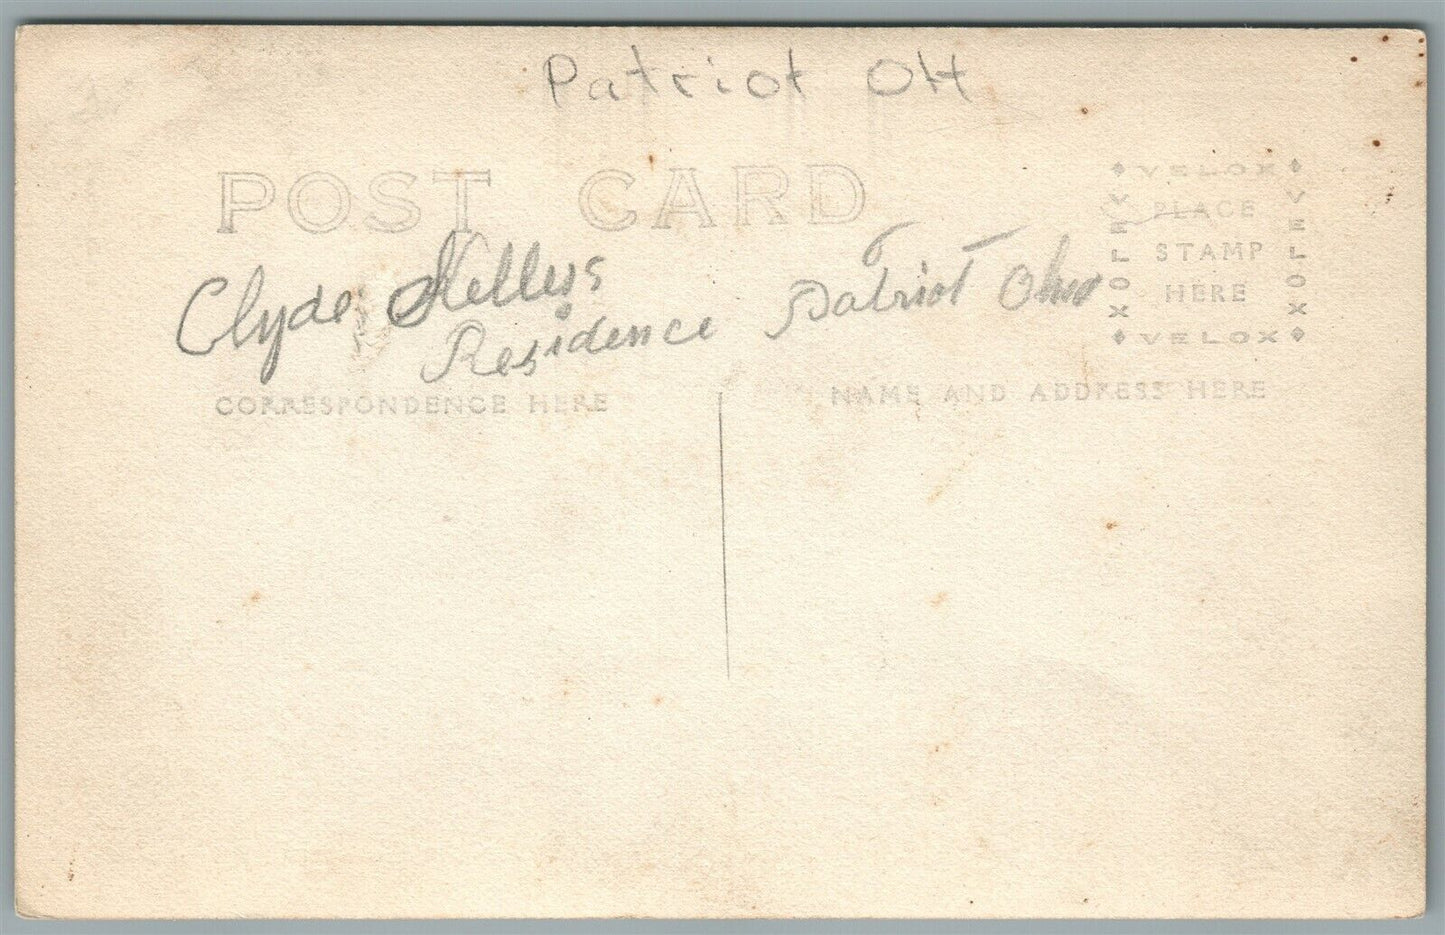 Patriot OH
POST CARD
VELOX
VELOX
VELOX
PLACE
STAMP
HERE
VELOX
Clyde
Residence
Patriot Ohio
CORRESPONDENCE HERE
NAME AND ADDRESS HERE